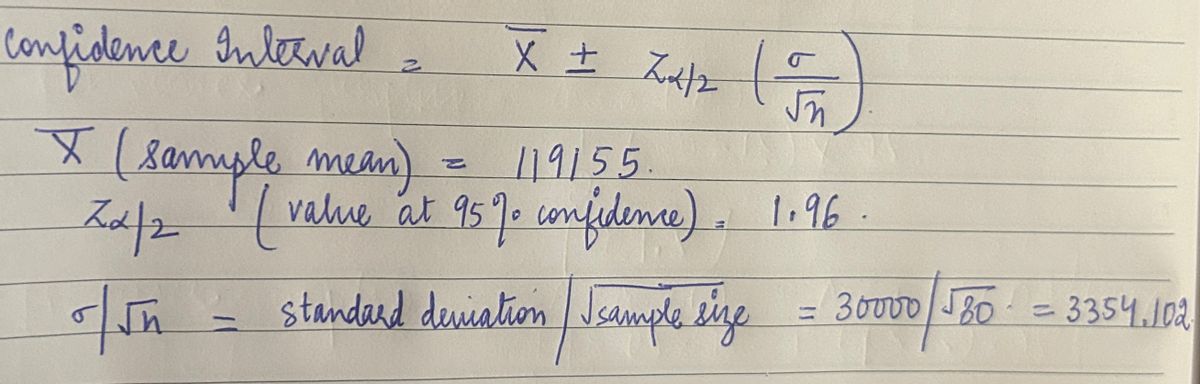 Confidence Interval = X̅ ± Zα/2 (σ/√n).
X̅ (sample mean) = 119155.
Zα/2 (value at 95% confidence) = 1.96.
σ/√n = standard deviation/√sample size = 30000/√80 = 3354.102